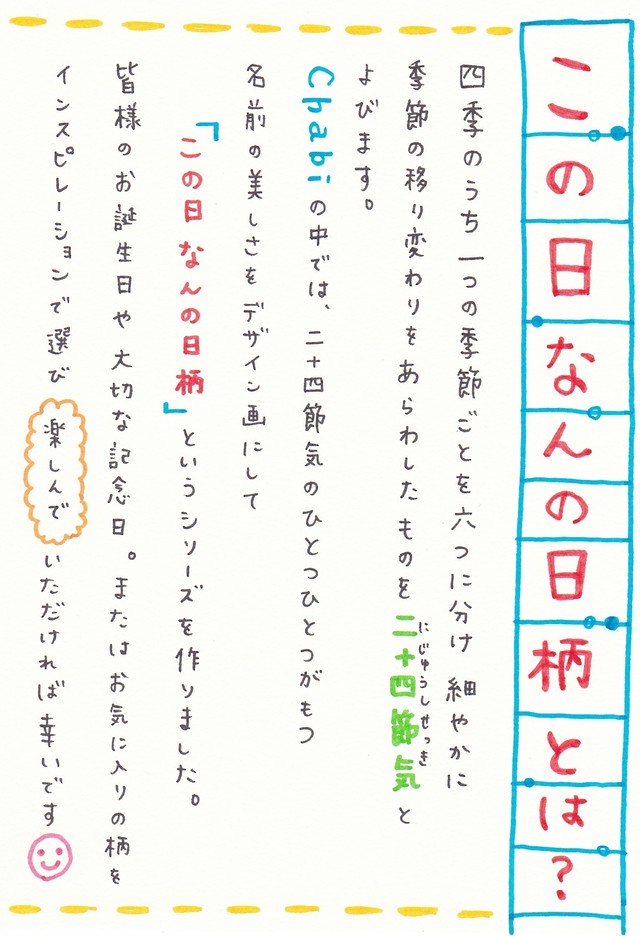 この日なんの日柄とは?
四季のうち 一つの季節ごとを六つに分け 細やかに
季節の移り変わりを あらわした ものを 二十四節気 と
にじゅうしせっき
よびます。
Chabiの中では、二十四節気のひとつひとつがもつ
名前の美しさをデザイン画にして
「この日 なんの日柄」というシリーズを作りました。
皆様のお誕生日や 大切な記念日。またはお気に入りの柄を
インスピレーションで選び 楽しんで いただければ幸いです